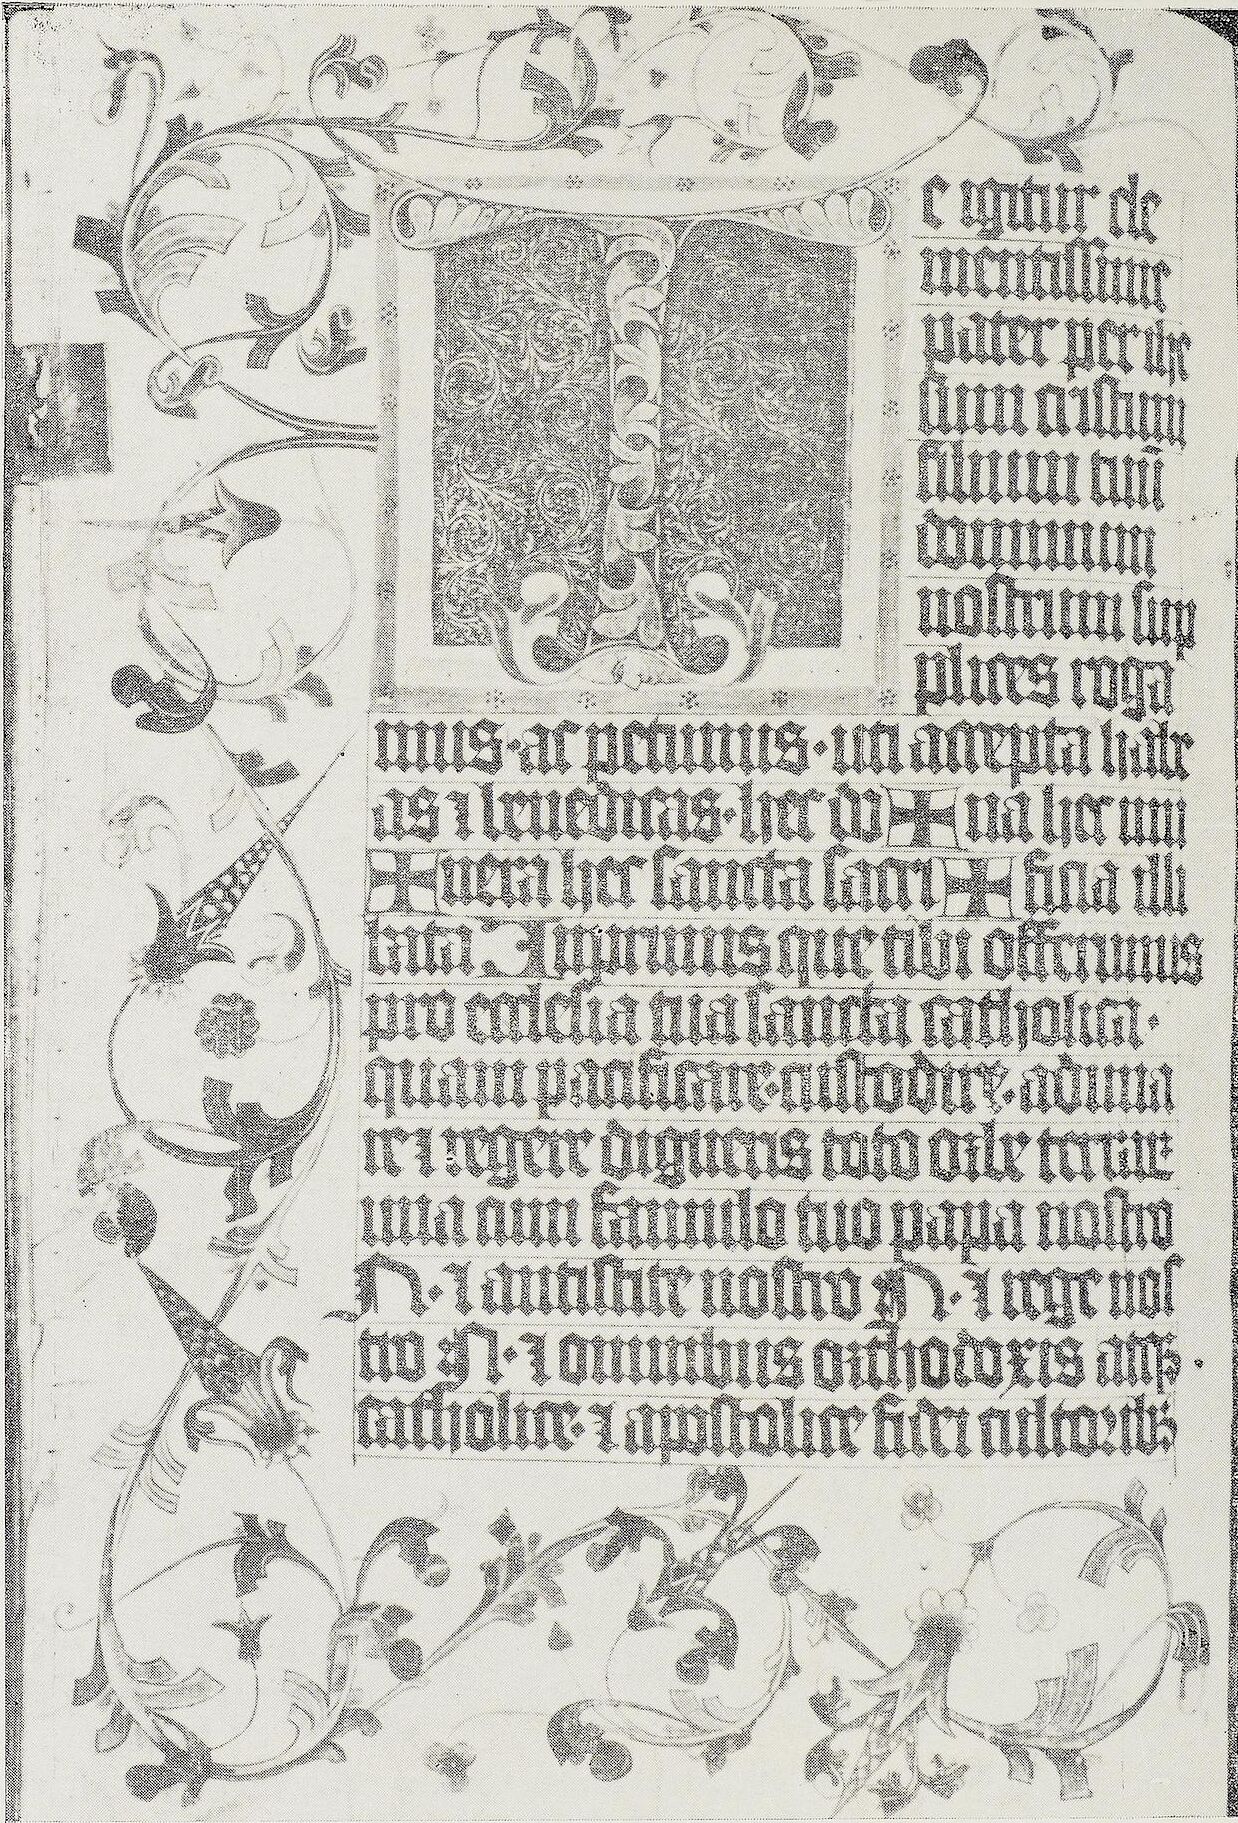 Te igitur cle
mentissime
pater per ihe
sum cristum
filium tuū
dominum
nostrum sup
plices roga
mus · ac petimus · uti accepta habe
as ⁊ benedicas · hec do ✠ na hec mu
✠ nera hec sancta sacri ✠ ficia illi
bata Inprimis que tibi offerimus
pro ecclesia tua sancta catholica ·
quam pacificare · custodire · aduna
re ⁊ regere digneris toto orbe terrarū
una cum famulo tuo papa nostro
N · ⁊ antistite nostro N · ⁊ rege nos
tro N · ⁊ omnibus orthodoxis atqꝫ ·
catholice · ⁊ apostolice fidei cultoribꝫ